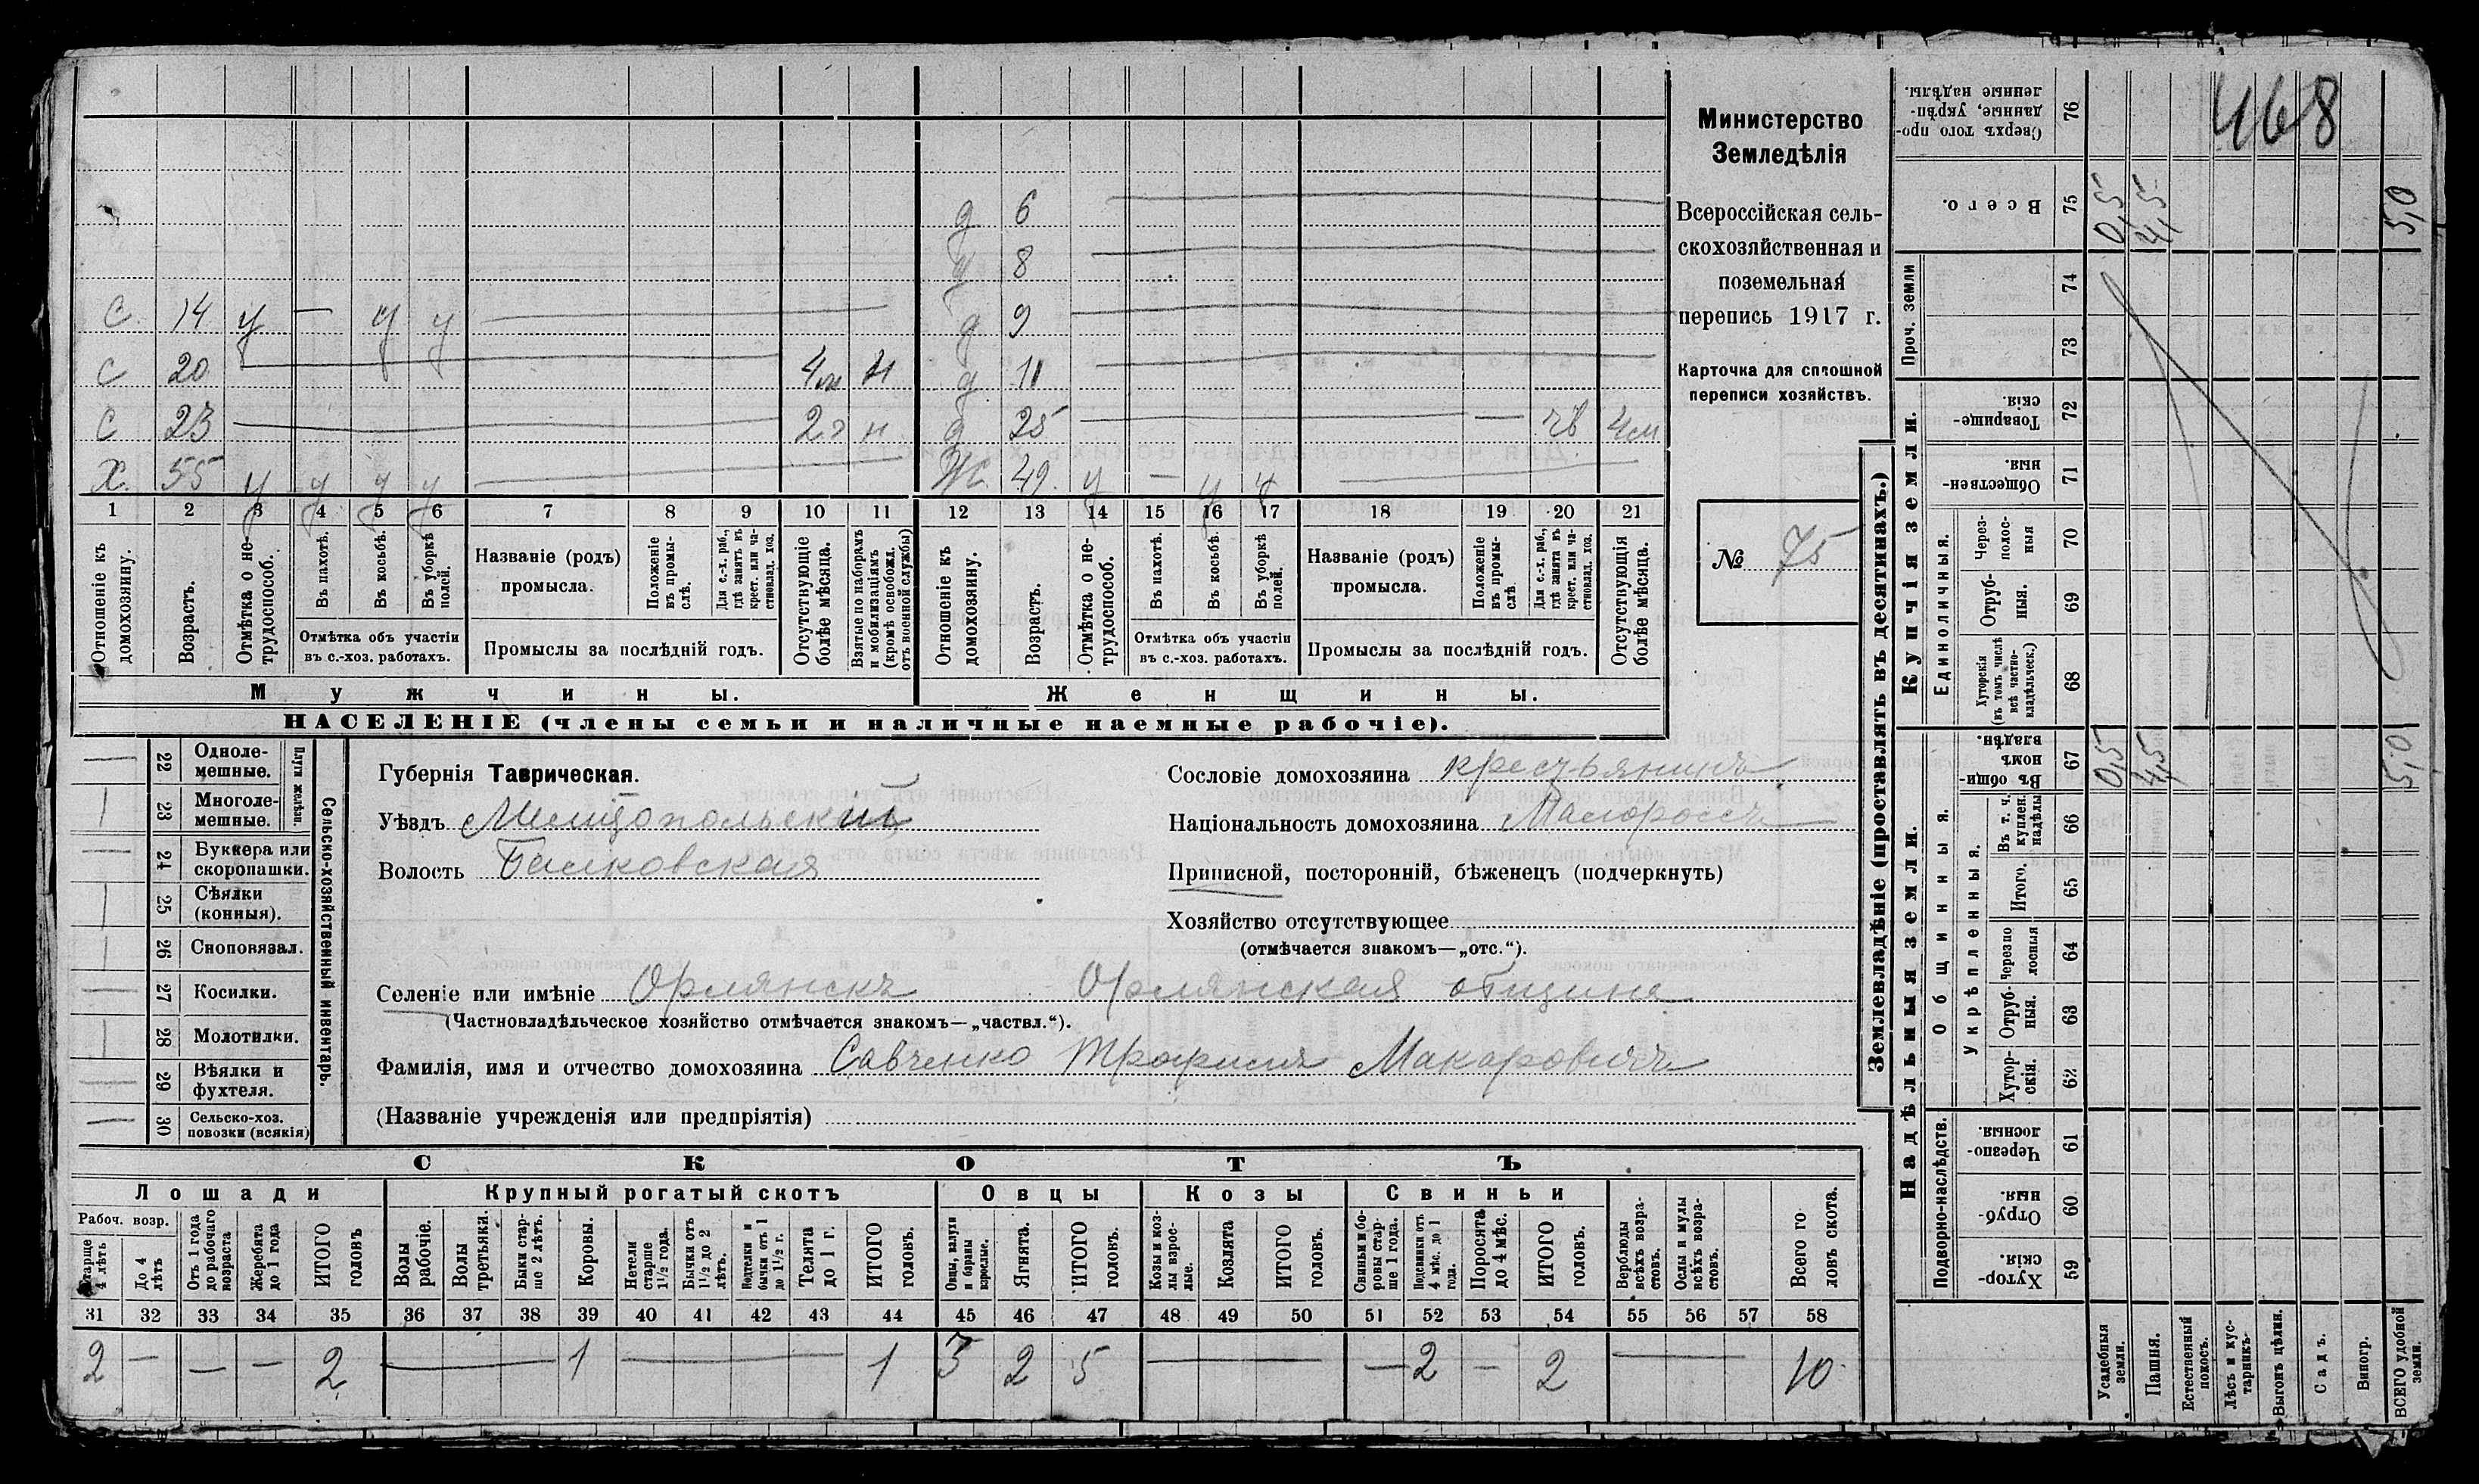 468
Министерство
Земледѣлія
Всероссійская сель-
скохозяйственная и
поземельная
перепись 1917 г.
Карточка для сплошной
переписи хозяйствъ.
№ 75
д 6
д 8
С. 14 у — у у д 9
С 20 4м н д 11
С 23 2г н д 25 — чв 4м
Х. 55 у у у у Ж. 49. у — у у
1 2 3 4 5 6 7 8 9 10 11 12 13 14 15 16 17 18 19 20 21
Отношеніе къ домохозяину.
Возрастъ.
Отмѣтка о не-
трудоспособ.
Въ пахотѣ.
Въ косьбѣ.
Въ уборкѣ полей.
Отмѣтка объ участіи
въ с.-хоз. работахъ.
Названіе (родъ)
промысла.
Положеніе въ промы-
слѣ.
Для с.-х. раб., гдѣ занятъ въ крест. или ча-
стновлад. хоз.
Промыслы за послѣдній годъ.
Отсутствующіе болѣе мѣсяца.
Взятые по наборамъ и мобилизаціямъ (кромѣ освобожд. отъ военной службы)
Отношеніе къ домохозяину.
Возрастъ.
Отмѣтка о не-
трудоспособ.
Въ пахотѣ.
Въ косьбѣ.
Въ уборкѣ полей.
Отмѣтка объ участіи
въ с.-хоз. работахъ.
Названіе (родъ)
промысла.
Положеніе въ промы-
слѣ
Для с.-х. раб., гдѣ занята въ крест. или ча-
стновлад. хоз.
Промыслы за послѣдній годъ.
Отсутствующія болѣе мѣсяца.
Мужчины. Женщины.
НАСЕЛЕНІЕ (члены семьи и наличные наемные рабочіе).
Сельско-хозяйственный инвентарь.
Плуги желѣзн.
— 22 Одноле-
мешные.
1 23 Многоле-
мешные.
— 24 Буккера или
скоропашки.
1 25 Сѣялки
(конныя).
1 26 Сноповязал.
— 27 Косилки.
1 28 Молотилки.
— 29 Вѣялки и
фухтеля.
— 30 Сельско-хоз.
повозки (всякія)
Губернія Таврическая.
Уѣздъ Мелитопольскій
Волость Балковская
Сословіе домохозяина крестьянинъ
Національность домохозяина Малороссъ
Приписной, посторонній, бѣженецъ (подчеркнуть)
Хозяйство отсутствующее
(отмѣчается знакомъ—„отс.“).
Селеніе или имѣніе Орлянскъ Орлянская община
(Частновладѣльческое хозяйство отмѣчается знакомъ—„частвл.“).
Фамилія, имя и отчество домохозяина Савченко Трофимъ Макаровичъ
(Названіе учрежденія или предпріятія)
СКОТЪ
Лошади Крупный рогатый скотъ Овцы Козы Свиньи
Рабоч. возр.
Старше 4 лѣтъ
До 4 лѣтъ
Отъ 1 года до рабочаго возраста
Жеребята до 1 года
ИТОГО головъ
Волы рабочіе.
Волы третьяки.
Быки стар-
ше 2 лѣтъ.
Коровы.
Нетели старше 1½ года.
Бычки отъ 1½ до 2 лѣтъ.
Подтелки и бычки отъ 1 до 1½ г.
Телята до 1 г.
ИТОГО головъ.
Овцы, валухи и бараны взрослые.
Ягнята.
ИТОГО головъ.
Козы и коз-
лы взрос-
лые.
Козлята
ИТОГО головъ.
Свиньи и бо-
ровы стар-
ше 1 года.
Подсвинки отъ 4 мѣс. до 1 года.
Поросята до 4 мѣс.
ИТОГО головъ.
Верблюды всѣхъ возра-
стовъ.
Ослы и мулы всѣхъ возра-
стовъ.
Всего го
ловъ скота.
31 32 33 34 35 36 37 38 39 40 41 42 43 44 45 46 47 48 49 50 51 52 53 54 55 56 57 58
2 — — — 2 — 1 — 1 3 2 5 — — 2 — 2 — 10
Землевладѣніе (проставлять въ десятинахъ.)
Надѣльныя земли. Купчія земли.
Проч. земли
Подворно-наслѣдств.
Общинныя.
Укрѣпленныя.
Единоличныя.
Сверхъ того про-
данные, укрѣп-
ленные надѣлы. 76
Всего. 75 0,5 4,5 5,0
74
73
Товарище-
скія 72
Обществен-
ныя. 71
Через-
полос-
ныя 70
Отруб-
ныя. 69
Хуторскія (въ томъ числѣ всѣ частно-
владѣльческ.) 68
Въ общин-
номъ владѣн. 67 0,5 4,5 5,0
Въ т. ч. куплен. надѣлы 66
Итого. 65
Черезпо
лосныя 64
Отруб-
ныя. 63
Хутор-
скія. 62
Черезпо-
лосныя. 61
Отруб-
ныя. 60
Хутор-
скія. 59
Усадебныя земли.
Пашня.
Естественный покосъ.
Лѣсъ и кус-
тарникъ.
Выгонъ цѣлин.
Садъ.
Виногр.
ВСЕГО удобной земли.